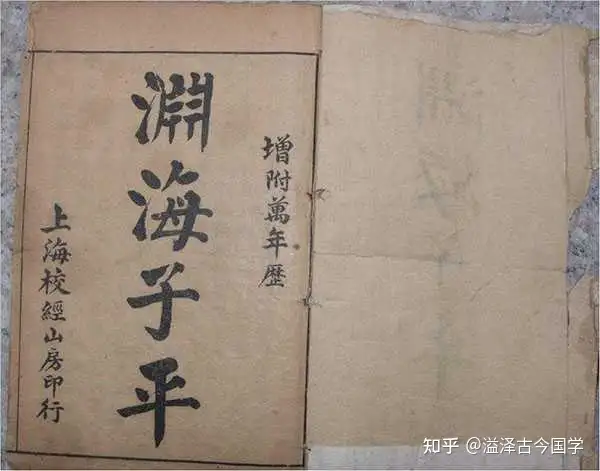 增附萬年歷
淵海子平
上海校經山房印行
知乎 @溢泽古今国学